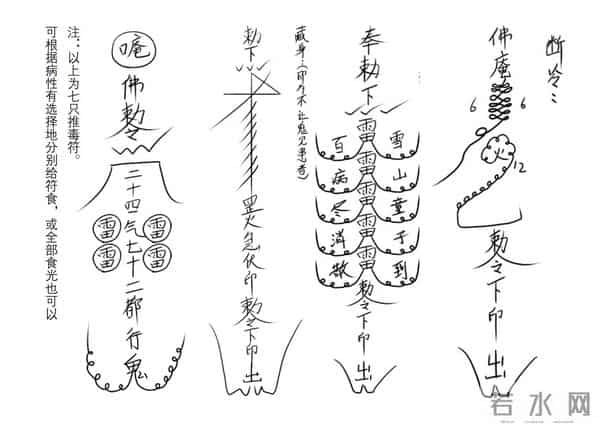 断冷：
佛庵
6 6
火
12
勅令下印出
奉勅下
雷雷雷雷雷
雪山童子到
百病尽消散
勅令下印出
藏身（印在不让鬼见患者）
勅下
罡火
伏印勅令下印出
唵
佛勅令
二十四气七十二都行鬼
雷雷
雷雷
注：以上为七只推毒符。
可根据病性有选择地分别给符食，或全部食光也可以
若水网